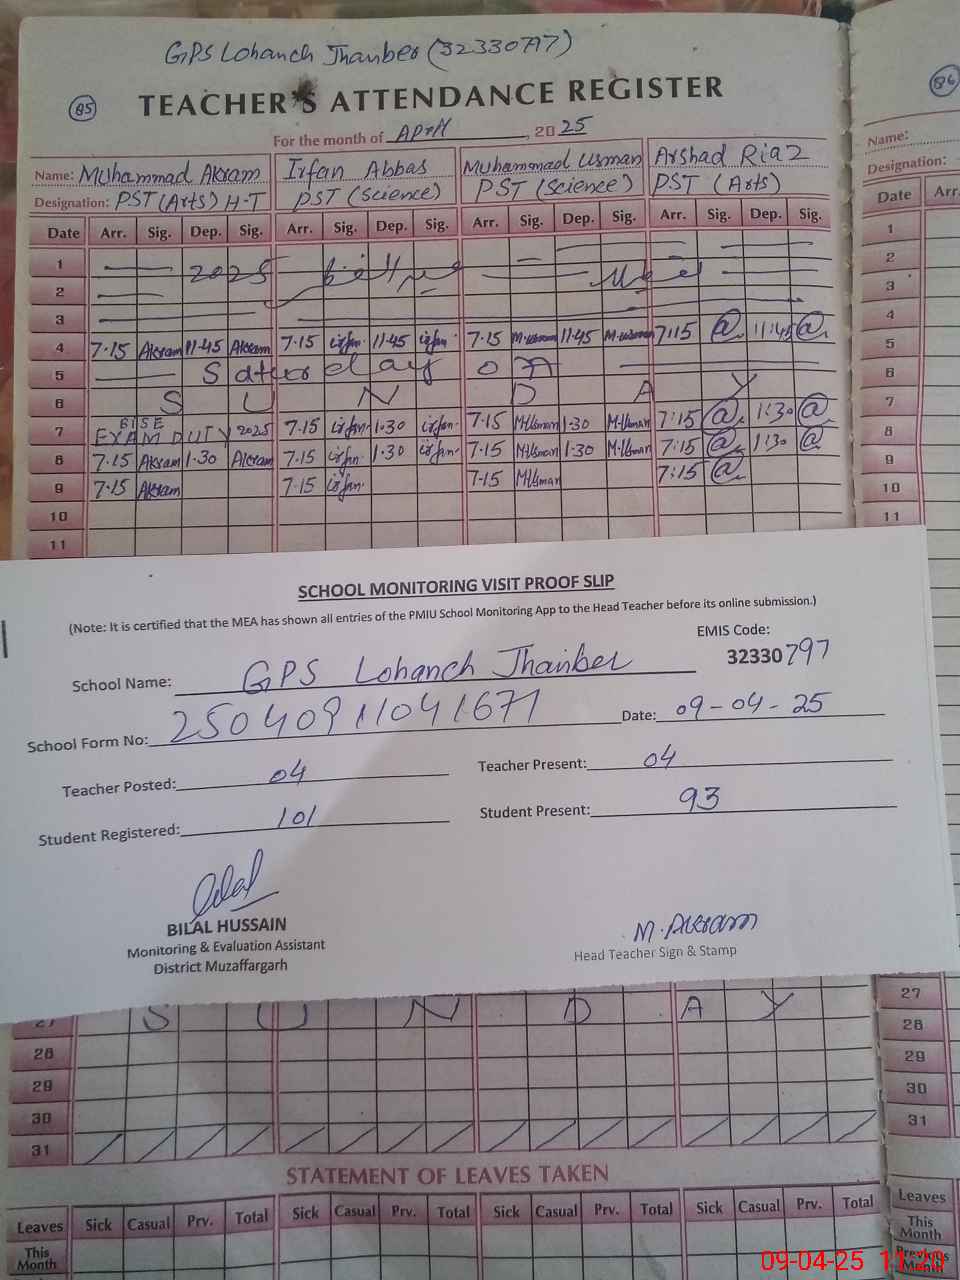 GPS Lohanch Jhanber (32330797)
85
TEACHER'S ATTENDANCE REGISTER
86
For the month of April, 2025
Name: Muhammad Akram Irfan Abbas Muhammad Usman Arshad Riaz
Name:
Designation: PST (Arts) H-T PST (Science) PST (Science) PST (Arts)
Designation:
Date Arr. Sig. Dep. Sig. Arr. Sig. Dep. Sig. Arr. Sig. Dep. Sig. Arr. Sig. Dep. Sig.
Date Arr.
1 2025
2
3
4 7.15 Akram 11.45 Akram 7.15 irfan. 11.45 irfan. 7.15 M.usman 11.45 M.usman 7:15 @ 11:45 @
5 Satterday off
6 S U N D A Y
7 BISE EXAM DUTY 2025 7.15 irfan. 1.30 irfan. 7.15 M.Usman 1.30 M.Usman 7:15 @ 1:30 @
8 7.15 Akram 1.30 Akram 7.15 irfan. 1.30 irfan. 7.15 M.Usman 1.30 M.Usman 7:15 @ 1:30 @
9 7.15 Akram 7.15 irfan. 7.15 M.Usman 7:15 @
10
11
1
2
3
4
5
6
7
8
9
10
11
SCHOOL MONITORING VISIT PROOF SLIP
(Note: It is certified that the MEA has shown all entries of the PMIU School Monitoring App to the Head Teacher before its online submission.)
EMIS Code:
School Name: GPS Lohanch Jhanber 32330797
School Form No: 25040911041671 Date: 09-04-25
Teacher Posted: 04 Teacher Present: 04
Student Registered: 101 Student Present: 93
Bilal
BILAL HUSSAIN
Monitoring & Evaluation Assistant
District Muzaffargarh
M.Akram
Head Teacher Sign & Stamp
27 S U N D A Y
28
29
30
31
27
28
29
30
31
STATEMENT OF LEAVES TAKEN
Leaves Sick Casual Prv. Total Sick Casual Prv. Total Sick Casual Prv. Total Sick Casual Prv. Total
This Month
Leaves
This Month
Previous Month
09-04-25 11:20